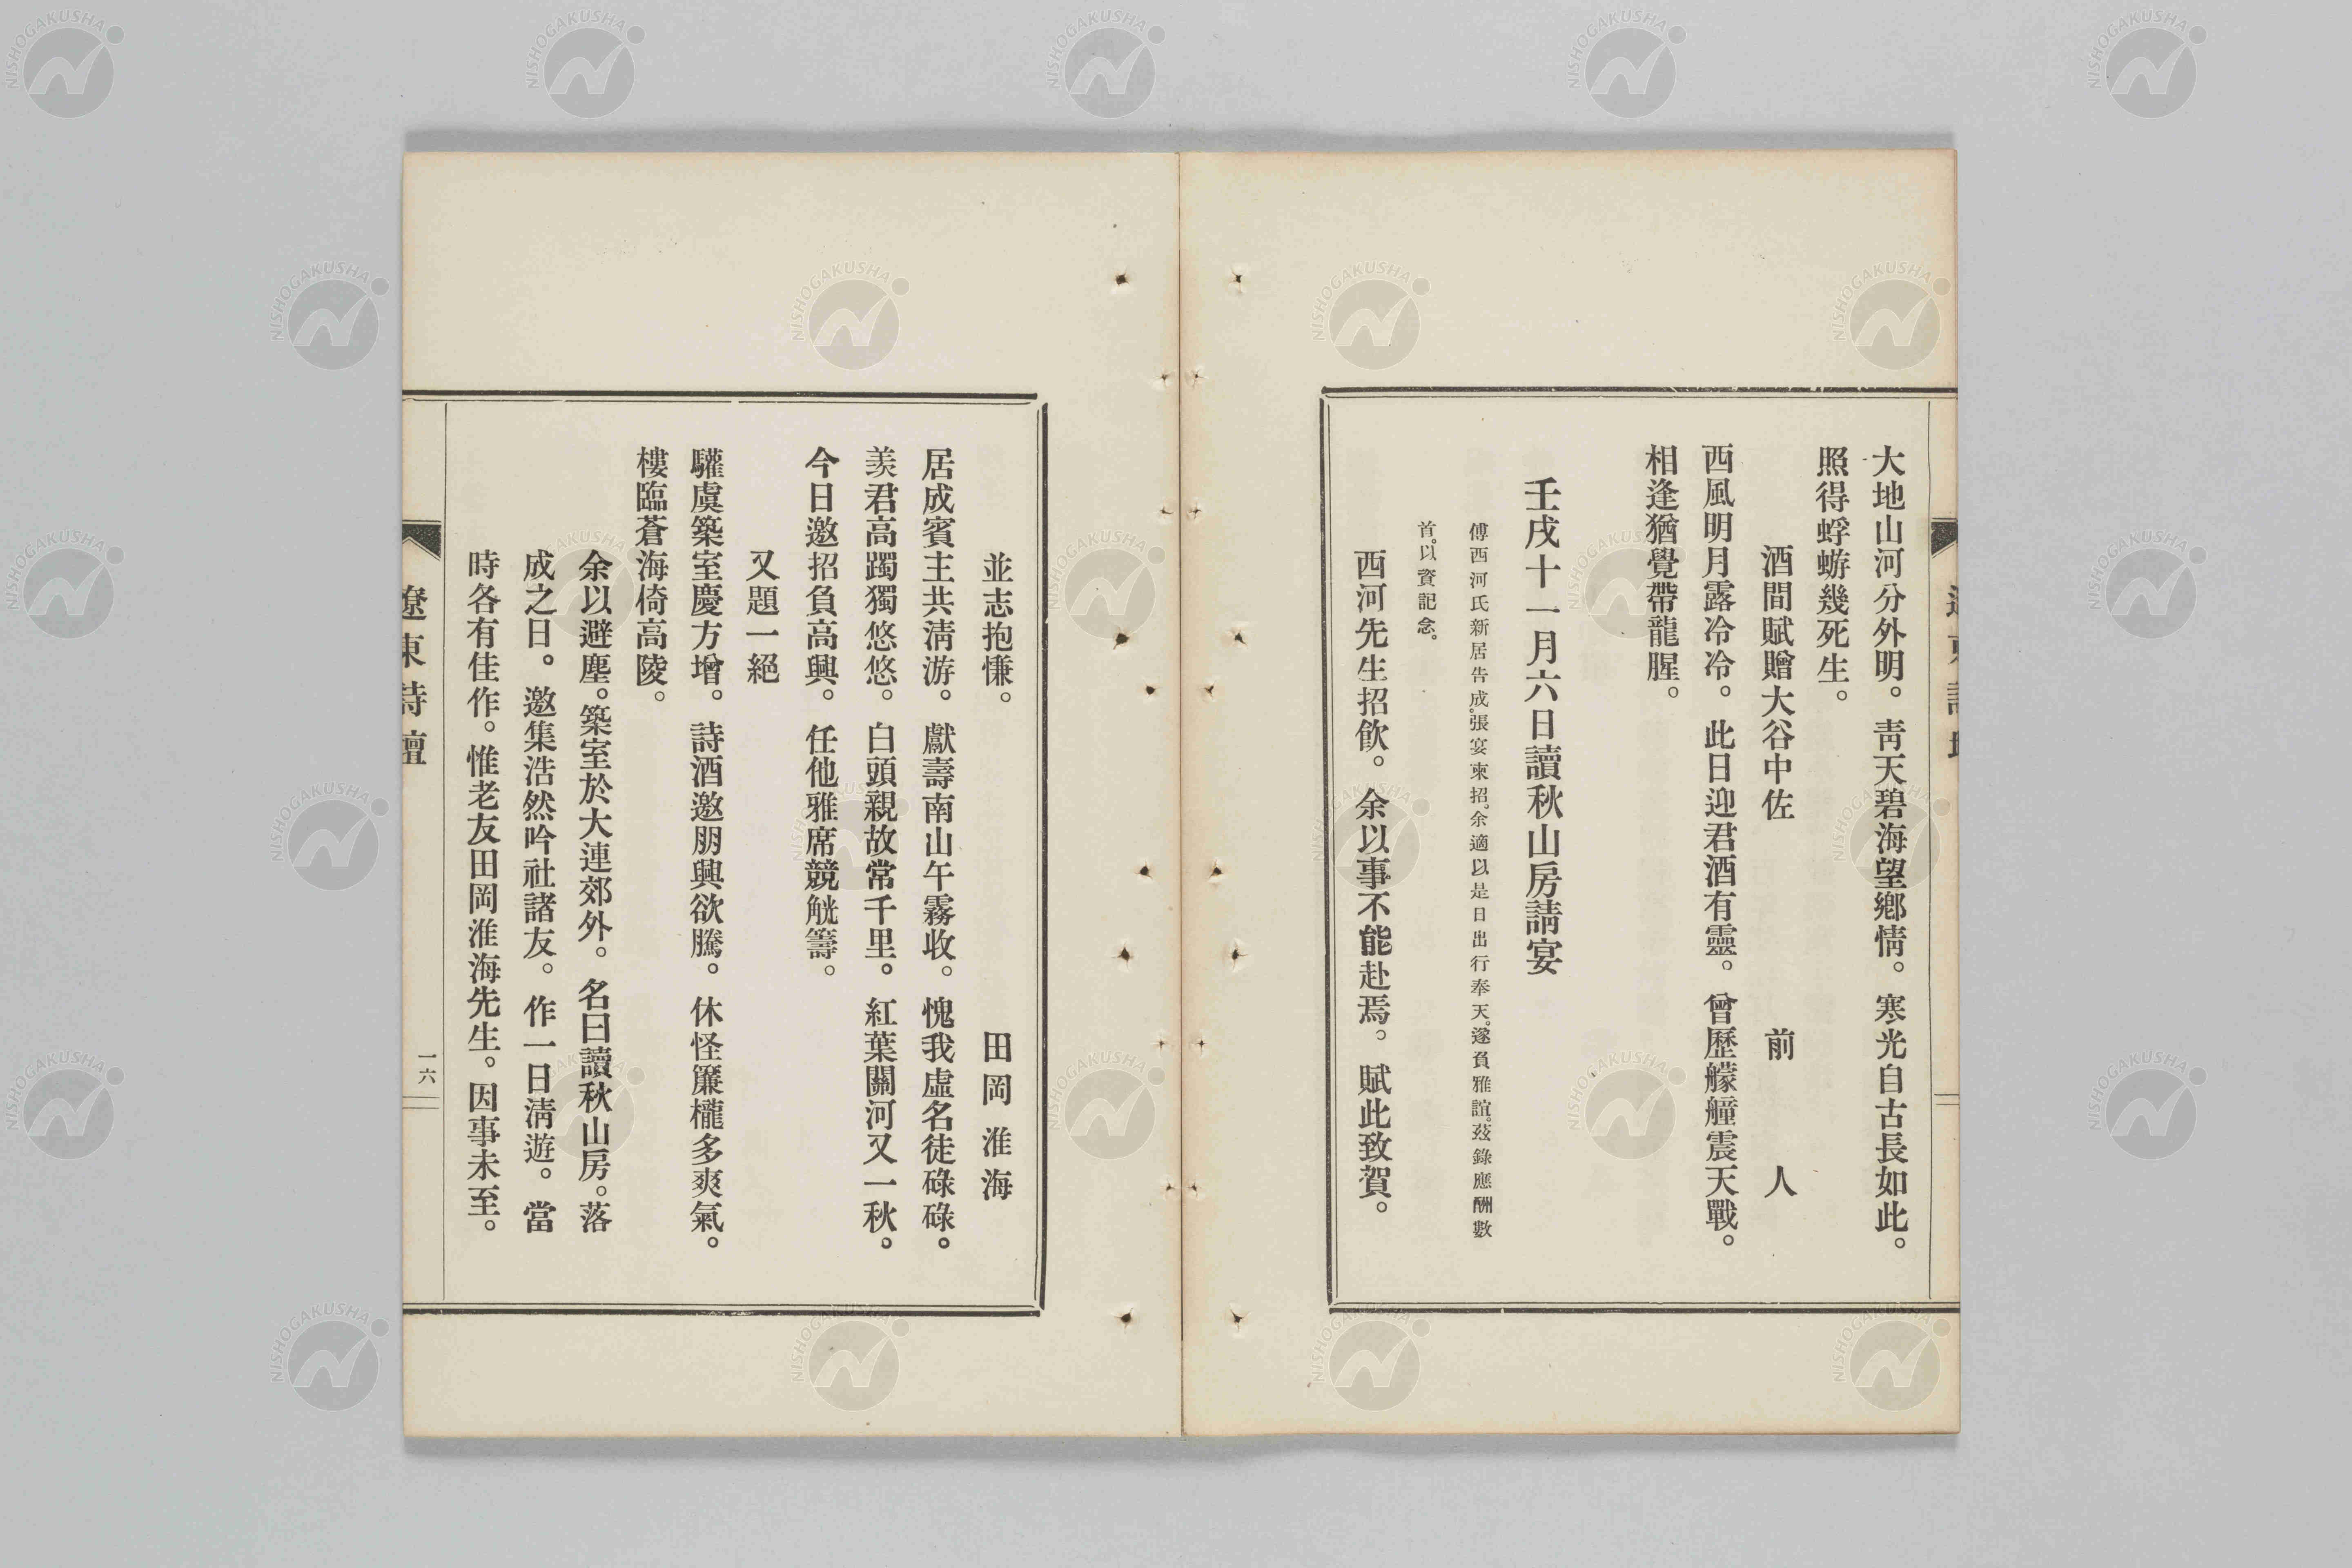 大地山河分外明。靑天碧海望鄕情。寒光自古長如此。
照得蜉蝣幾死生。
酒間賦贈大谷中佐　前人
西風明月露冷冷。此日迎君酒有靈。曾歷艨艟震天戰。
相逢猶覺帶龍腥。
壬戌十一月六日讀秋山房請宴
傅西河氏新居告成。張宴柬招。余適以是日出行奉天。遂負雅誼。玆錄應酬數
首。以資記念。
西河先生招飮。余以事不能赴焉。賦此致賀。
並志抱慊。　田岡淮海
居成賓主共淸游。獻壽南山午霧收。愧我虛名徒碌碌。
羨君高躅獨悠悠。白頭親故常千里。紅葉關河又一秋。
今日邀招負高興。任他雅席競觥籌。
又題一絕
驩虞築室慶方增。詩酒邀朋興欲騰。休怪簾櫳多爽氣。
樓臨蒼海倚高陵。
余以避塵。築室於大連郊外。名曰讀秋山房。落
成之日。邀集浩然吟社諸友。作一日淸遊。當
時各有佳作。惟老友田岡淮海先生。因事未至。
遼東詩壇
一六
NISHOGAKUSHA